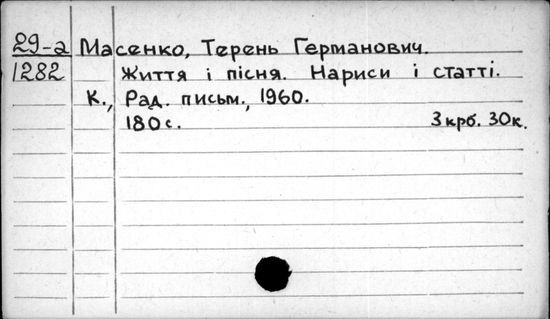 29-а Масенко, Терень Германович.
1282 Життя і пісня. Нариси і статті.
К., Рад. письм., 1960.
180 с. 3 крб. 30 к.